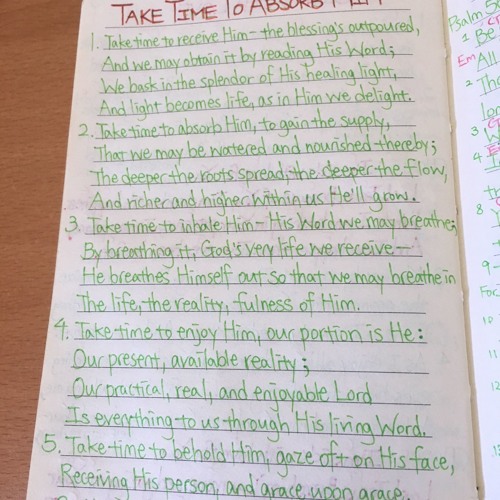 TAKE TIME TO ABSORB HIM
1. Take time to receive Him - the blessing's outpoured,
And we may obtain it by reading His Word;
We bask in the splendor of His healing light,
And light becomes life, as in Him we delight.
2. Take time to absorb Him, to gain the supply,
That we may be watered and nourished thereby;
The deeper the roots spread, the deeper the flow,
And richer and higher within us He'll grow.
3. Take time to inhale Him - His Word we may breathe;
By breathing it, God's very life we receive -
He breathes Himself out so that we may breathe in
The life, the reality, fulness of Him.
4. Take time to enjoy Him, our portion is He:
Our present, available reality;
Our practical, real, and enjoyable Lord
Is everything to us through His living Word.
5. Take time to behold Him, gaze oft on His face,
Receiving His person, and grace upon grace
Psalm 5
1 Be
Em All
2 Th
3
4
8
9
For
10
11
12